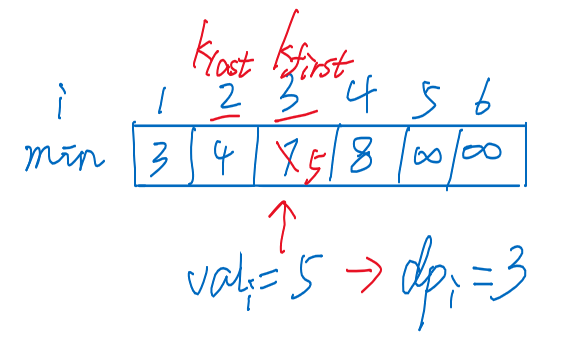 klast kfirst
i 1 2 3 4 5 6
min 3 4 7 5 8 ∞ ∞
vali = 5 → dpi = 3